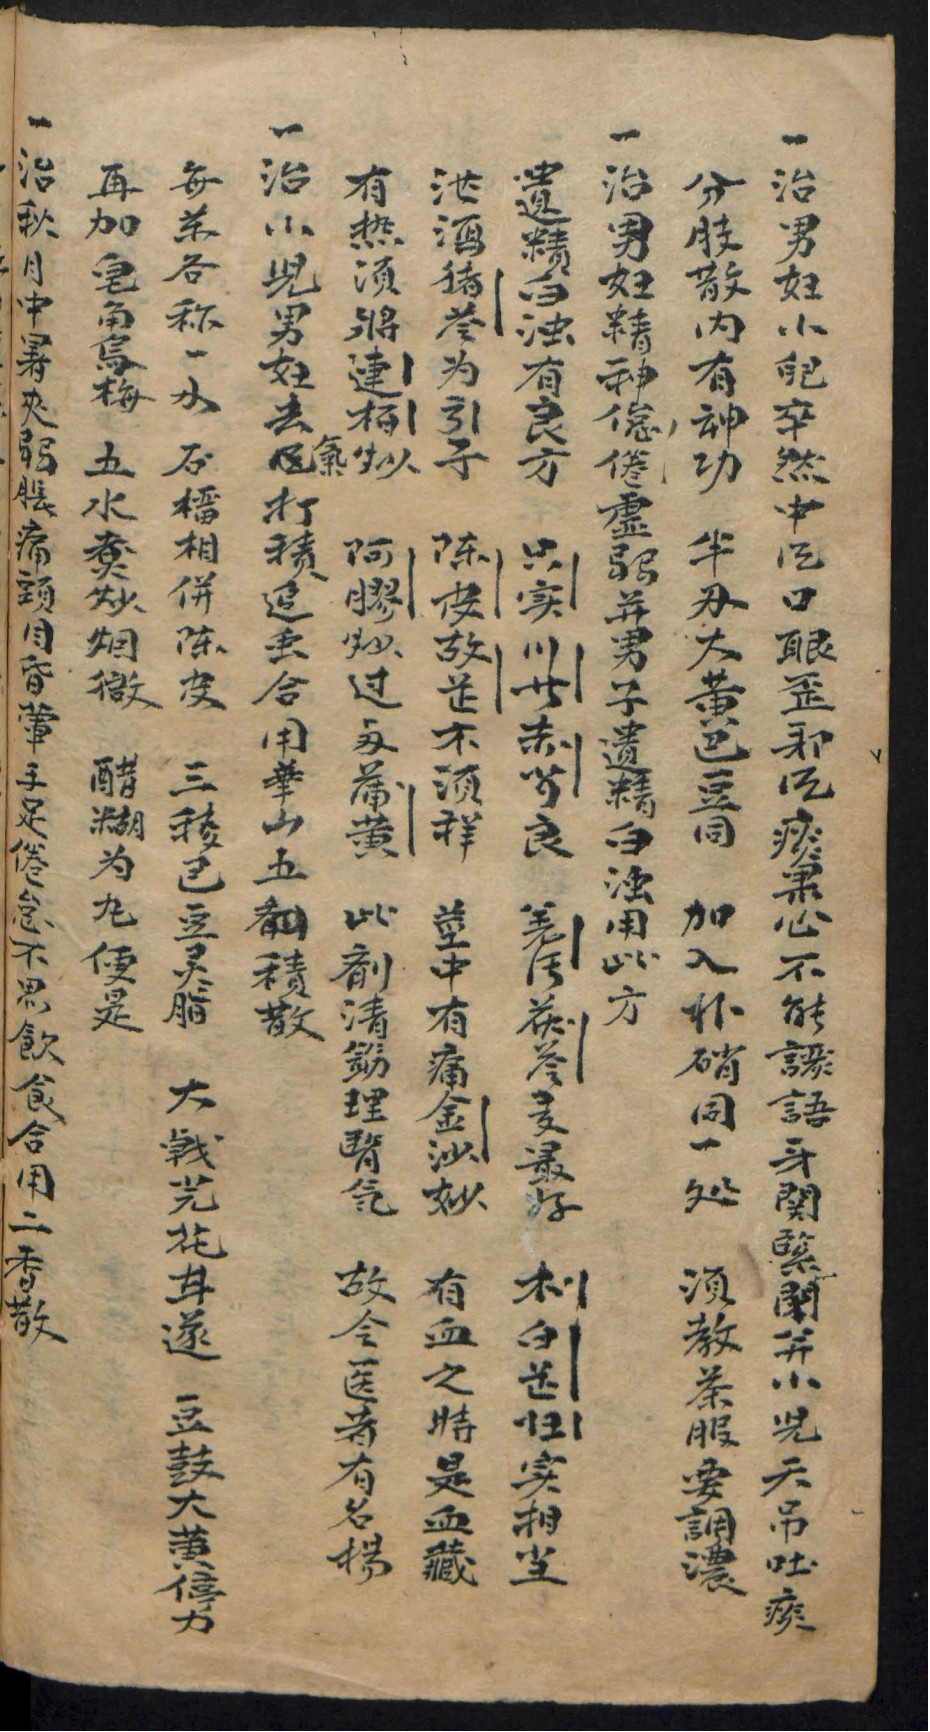 一治男妇小児卒然中风口眼歪邪风痰裹心不能讝語牙関緊閉并小児天吊吐痰
分肢散内有神功 半刄大黄巴豆同 加入朴硝同一处 須教茶服要調濃
一治男妇精神倦虚弱并男子遺精白浊用此方
遺精白浊有良方 只实川廿赤芍良 羗活茯苓麦最好 木白芷归实相坐
洪酒猪苓为引子 陈皮故芷不須祥 莖中有痛金沙妙 有血之時是血藏
有热須將連栢炒 阿膠炒过与蒲黄 此剤清筋理腎气 故今医者有名楊
一治小児男妇去风氣打積追虫合用華山五積散
每茶各称一水 石榴相併陈皮 三稜巴豆灵脂 大戟芫花甘遂 豆鼓大黄停力
再加皂角烏梅 五水煮炒烟微 醋糊为丸便是
一治秋月中暑夾弱脹痛頭目昏暈手足倦怠不思飲食合用二香散